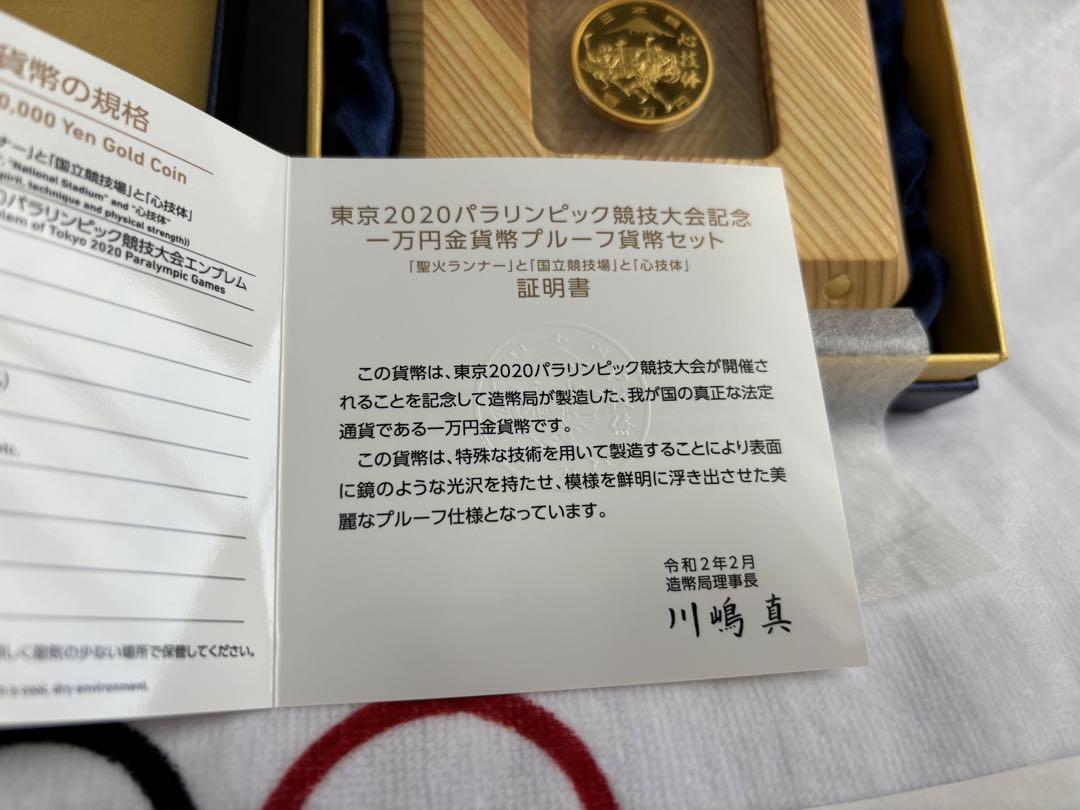 貨幣の規格
0,000 Yen Gold Coin
ナー」と「国立競技場」と「心技体」
"National Stadium" and "心技体"
spirit, technique and physical strength))
0パラリンピック競技大会エンブレム
blem of Tokyo 2020 Paralympic Games
etc.
湿気の少ない場所で保管してください。
cool, dry environment.
日本国
心技体
一万円
東京2020パラリンピック競技大会記念
一万円金貨幣プルーフ貨幣セット
「聖火ランナー」と「国立競技場」と「心技体」
証明書
この貨幣は、東京2020パラリンピック競技大会が開催さ
れることを記念して造幣局が製造した、我が国の真正な法定
通貨である一万円金貨幣です。
この貨幣は、特殊な技術を用いて製造することにより表面
に鏡のような光沢を持たせ、模様を鮮明に浮き出させた美
麗なプルーフ仕様となっています。
令和2年2月
造幣局理事長
川嶋 真